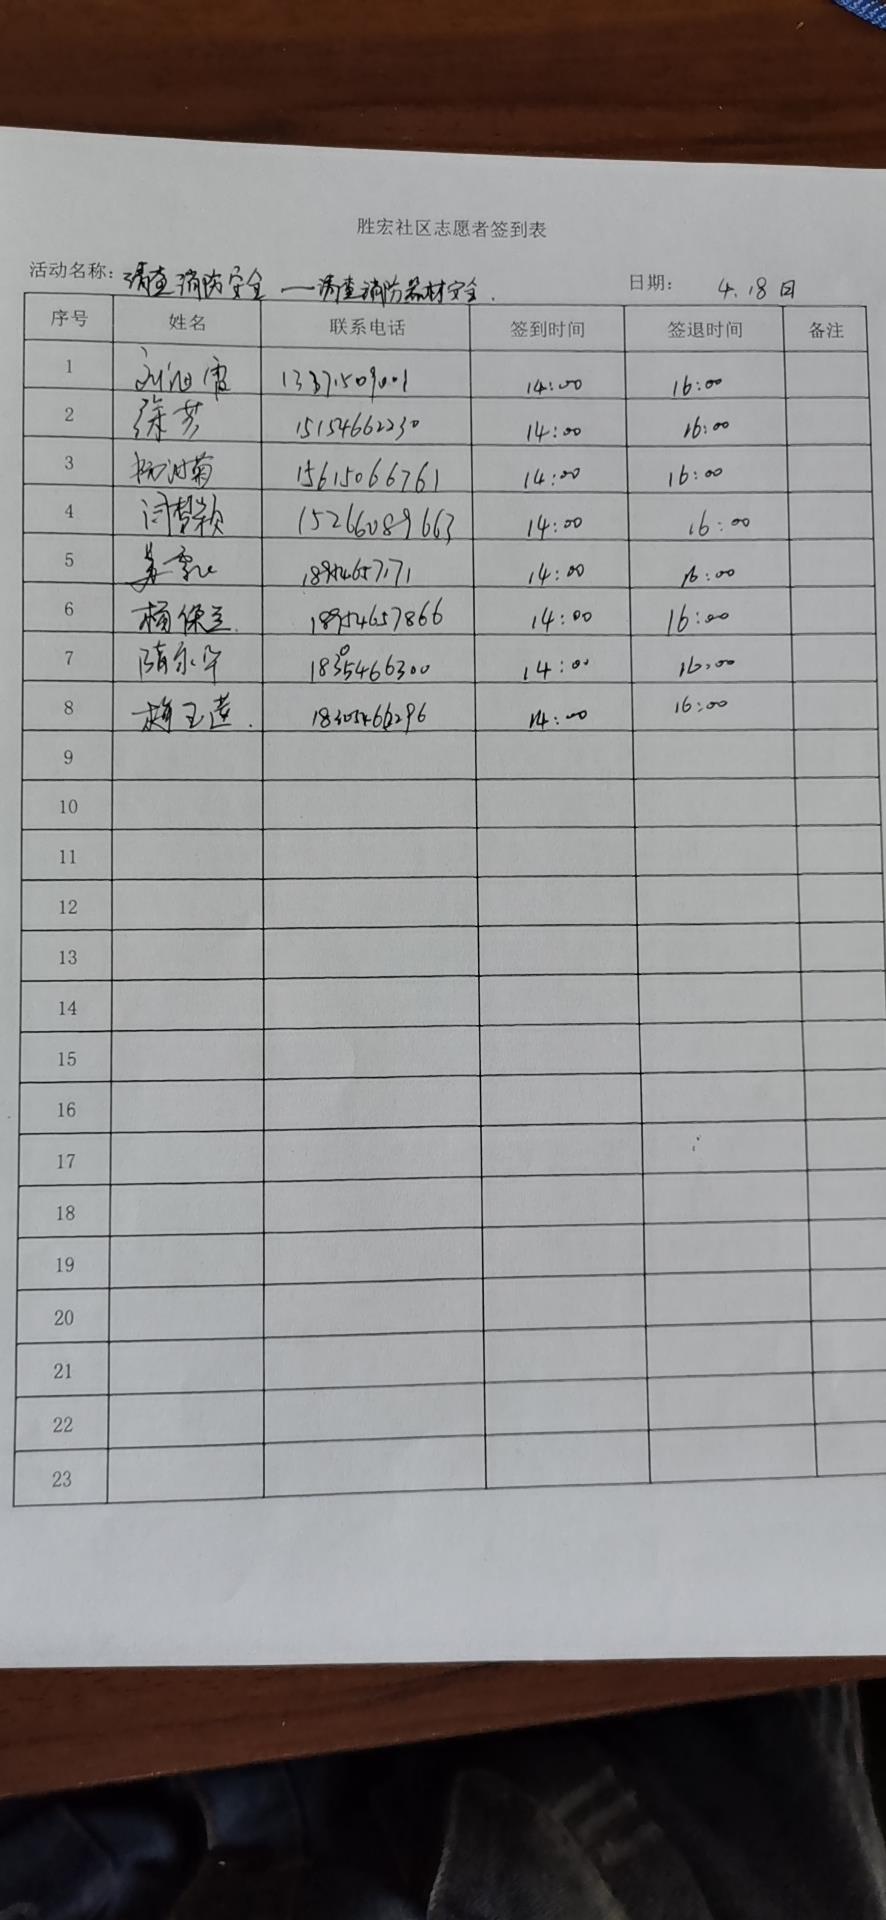 胜宏社区志愿者签到表
活动名称：清查消防安全——清查消防器材安全. 日期： 4.18日
序号 姓名 联系电话 签到时间 签退时间 备注
1 14:00 16:00
2 徐芳 15154662230 14:00 16:00
3 15615066761 14:00 16:00
4 闫梦颖 15266089663 14:00 16:00
5 18954657171 14:00 16:00
6 杨保兰. 18954657866 14:00 16:00
7 隋永华 14:00 16:00
8 梅玉莲. 18305466296 14:00 16:00
9
10
11
12
13
14
15
16
17
18
19
20
21
22
23